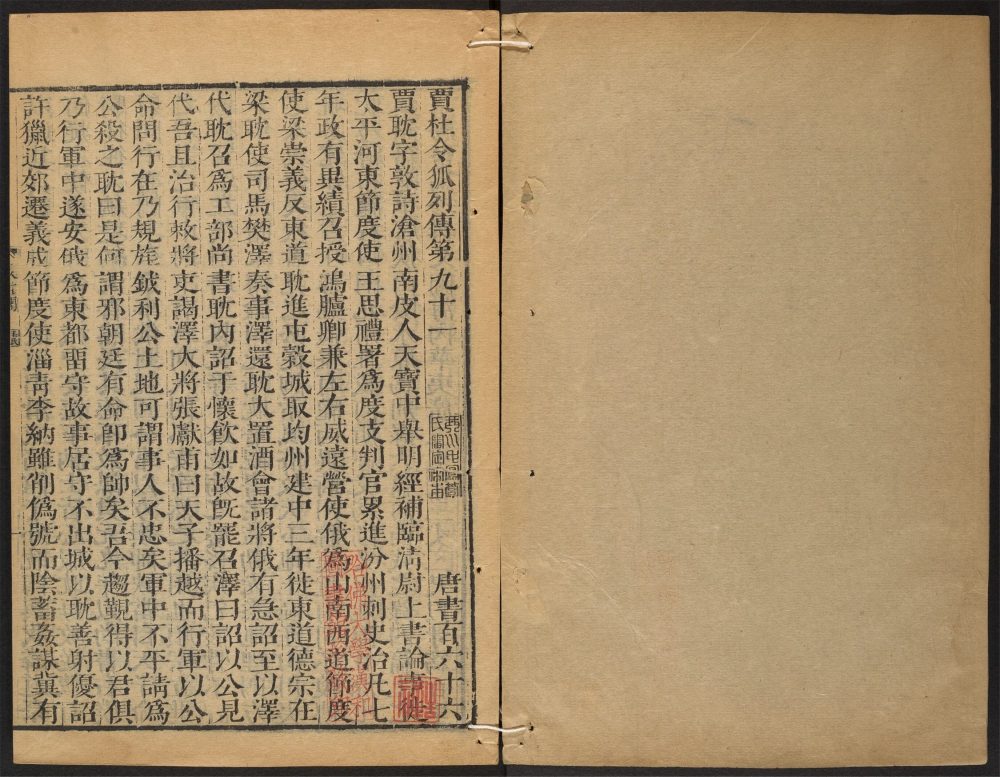 賈杜令狐列傳第九十一 唐書百六十六
賈耽字敦詩滄州南皮人天寶中舉明經補臨清尉上書論事徙
太平河東節度使王思禮署爲度支判官累進汾州刺史治凡七
年政有異績召授鴻臚卿兼左右威遠營使俄爲山南西道節度
使梁崇義反東道耽進屯穀城取均州建中三年徙東道德宗在
梁耽使司馬樊澤奏事澤還耽大置酒會諸將俄有急詔至以澤
代耽召爲工部尚書耽內詔于懷飲如故旣罷召澤曰詔以公見
代吾且治行敕將吏謁澤大將張獻甫曰天子播越而行軍以公
命問行在乃規旄鉞利公土地可謂事人不忠矣軍中不平請爲
公殺之耽曰是何謂邪朝廷有命卽爲帥矣吾今趨覲得以君俱
乃行軍中遂安俄爲東都留守故事居守不出城以耽善射優詔
許獵近郊遷義成節度使淄靑李納雖削僞號而陰畜姦謀冀有